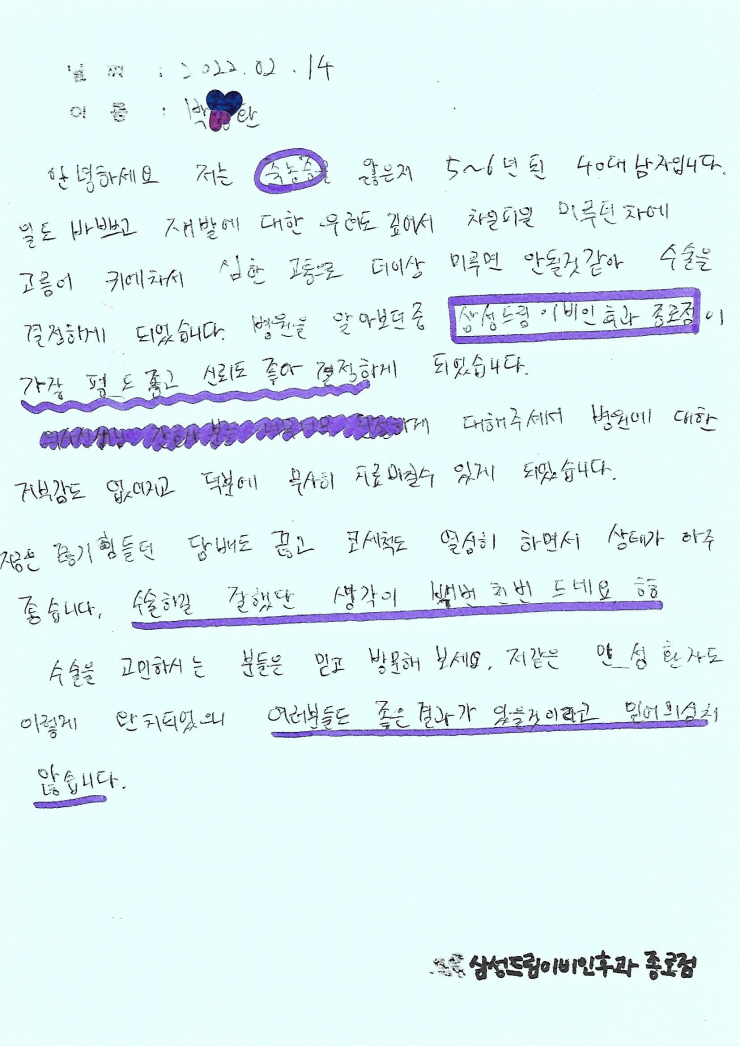 날짜 : 2022.02.14
이름 : 박 탄
안녕하세요 저는 축농증을 앓은지 5~6년된 40대 남자입니다.
일도 바쁘고 재발에 대한 우려도 깊어서 차일피일 미루던차에
고름이 귀에차서 심한 고통으로 더이상 미루면 안될것같아 수술을
결정하게 되었습니다. 병원을 알아보던중 삼성드림이비인후과 종로점이
가장 평도 좋고 신뢰도 좋아 결정하게 되었습니다.
게 대해주셔서 병원에 대한
거부감도 없어지고 덕분에 무사히 치료마칠수 있게 되었습니다.
지금은 끊기힘들던 담배도 끊고 코세척도 열심히 하면서 상태가 아주
좋습니다. 수술하길 잘했단 생각이 백번 천번 드네요 ㅎㅎ
수술을 고민하시는 분들은 믿고 방문해 보세요. 저같은 만성환자도
이렇게 완치되었으니 여러분들도 좋은결과가 있을것이라고 믿어의심치
않습니다.
삼성드림이비인후과 종로점